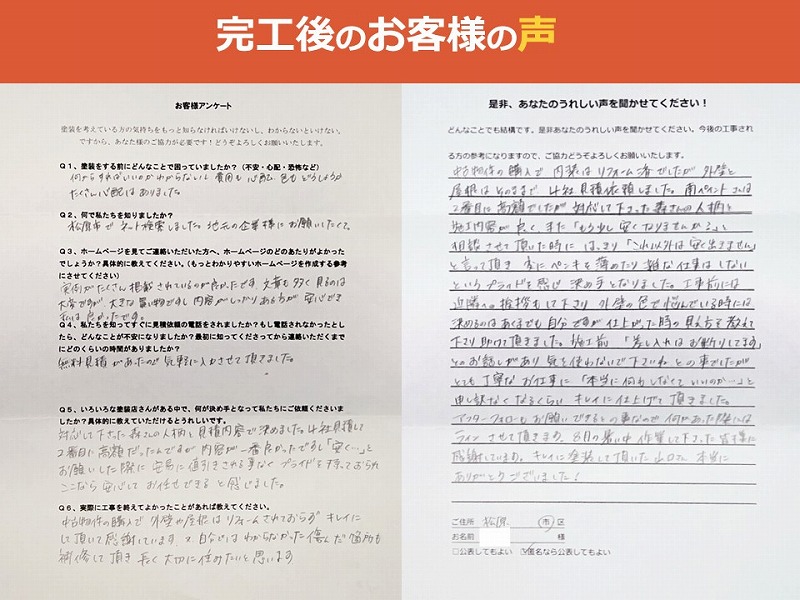 完工後のお客様の声
お客様アンケート
塗装を考えている方の気持ちをもっと知らなければいけないし、わからないといけない。
ですから、あなた様のご協力が必要です！どうぞよろしくお願いいたします。
Q１、塗装をする前にどんなことで困っていましたか？（不安・心配・恐怖など）
何からすればいいかわからないし 費用も心配 色もどうしようか
たくさん心配はありました。
Q２、何で私たちを知りましたか？
松原市でネット検索しました。地元の企業様にお願いしたくて。
Q３、ホームページを見てご連絡いただいた方へ、ホームページのどのあたりがよかった
でしょうか？具体的に教えてください。（もっとわかりやすいホームページを作成する参考
にさせてください）
実例がたくさん掲載されているのが良かったです 文章も多く 見るのは
大変ですが、大きな買い物ですし 内容がしっかりある方が 安心でき
私は良かったです。
Q４、私たちを知ってすぐに見積依頼の電話をされましたか？もし電話されなかったとし
たら、どんなことが不安になりましたか？最初に知ってくださってから連絡いただくまで
にどのくらいの時間がありましたか？
無料見積があったので 気軽に入力させて頂きました。
Q５、いろいろな塗装店さんがある中で、何が決め手となって私たちにご依頼くださいま
したか？具体的に教えていただけるとうれしいです。
対応して下さった森さんの人柄と見積内容で決めました。4社見積して
2番目に高額だったんですが 内容が一番良かったですし「安く…」と
お願いした際に 安易に値引きされる事なく プライドを持っておられ
ここなら 安心して お任せできる と感じました。
Q６、実際に工事を終えてよかったことがあれば教えてください。
中古物件の購入で 外壁や屋根は リフォームされておらず キレイに
して頂いて感謝しています 又 自分ではわからなかった傷んだ箇所も
補修して頂き 長く 大切に住みたいと思います
是非、あなたのうれしい声を聞かせてください！
どんなことでも結構です。是非あなたのうれしい声を聞かせてください。今後の工事され
る方の参考になりますので、ご協力どうぞよろしくお願いいたします。
中古物件の購入で 内装は リフォーム済でしたが 外壁と
屋根は そのままで 4社見積依頼しました。南ペイントさんは
2番目に高額でしたが 対応して下さった森さんの人柄と
施工内容が良く、また「もう少し 安くなりませんか？」
相談させて頂いた時に はっきり「これ以外は安く出来ません」
と言って頂き 客にペンキを薄めたり 雑な仕事はしない
というプライドを感じ 決め手となりました。工事前には
近隣への挨拶もして下さり 外壁の色で悩んでいる時には
決めるのはあくまでも自分ですが 仕上がった時の見え方を教えて
下さり助けて頂きました。施工前「差し入れはお断りしてます」
とのお話しがあり 気を使わないで下さいね との事でしたが
とても丁寧なお仕事に「本当に何もしなくていいのか…」と
申し訳なくなるくらい キレイに仕上げて頂きました。
アフターフォローもお願いできるとの事なので 何かあった際には
ライン させて頂きます。8月の暑い中 作業して下さった皆様に
感謝しています。キレイに塗装して頂いた山口さん 本当に
ありがとうございました！
ご住所 松原 市 区
お名前 様
□公表してもよい ☑匿名なら公表してもよい